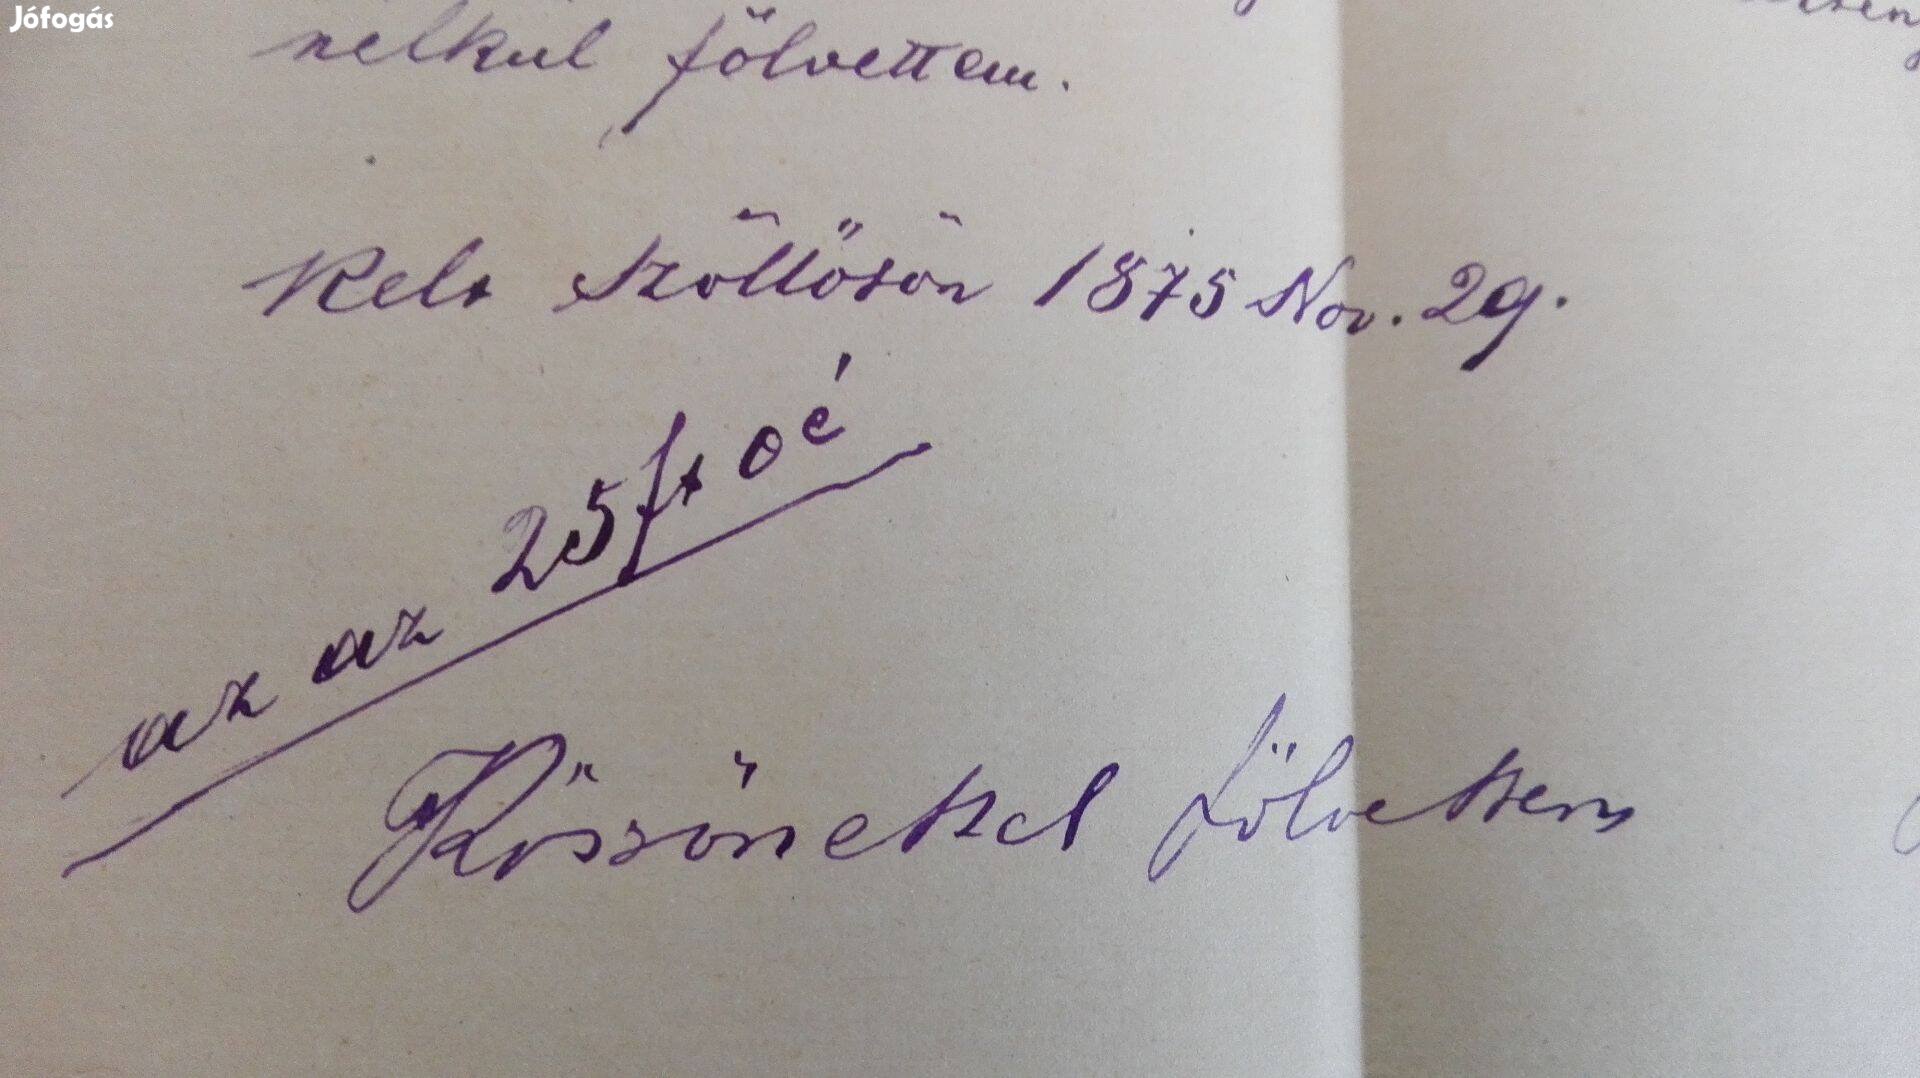 Jófogás
nelkul fölvettem.
Kelt Szöllősön 1875 Nov. 29.
az az 25 ft o é
Kössönettel fölvettem